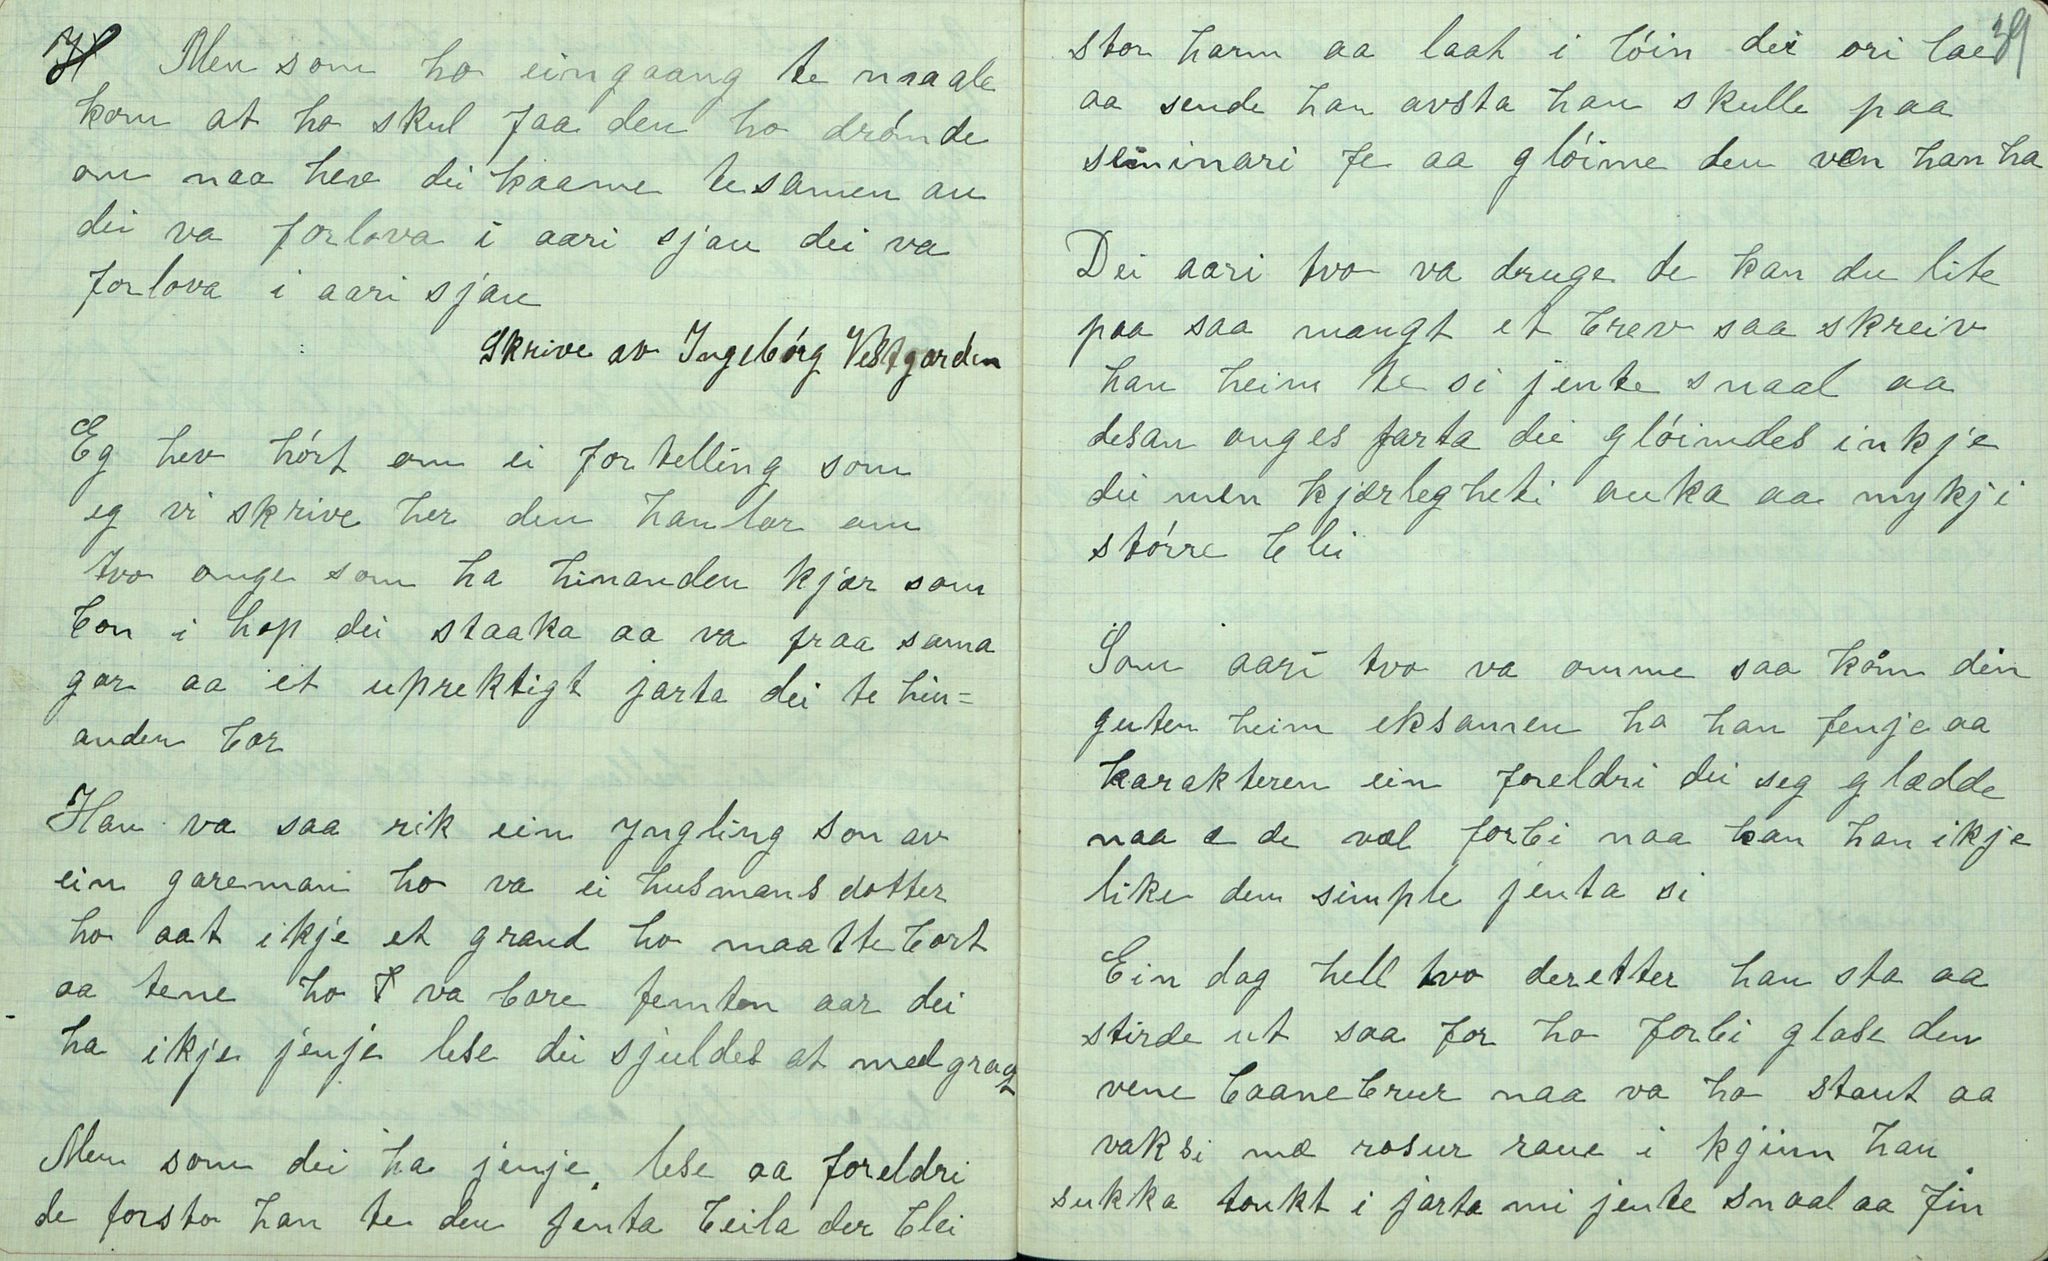 Men som ho eingaang te maale
kom at ho skul faa den ho drómde
om naa hev dei kaame tesamen au
dei va forlova i aari sjau dei va
forlova i aari sjau
Skrive av Ingebórg Vestgarden
Eg hev hórt om ei fortelling som
eg vi skrive her den hanlar om
tvo onge som ha hinanden kjær som
bon i hop dei staaka aa va fraa sama
gar aa eit uprektigt jarta dei te hin=
anden bar
Han va saa rik ein yngling son av
ein garemann ho va ei husmansdotter
ho aat ikje et grand ho maatte bort
aa tene ho va bare femton aar dei
ha ikje jenje lese dei sjuldes at med graat
Men som dei ha jenje lese aa foreldri
de forsto han te den jenta beila der blei
39
stor harm aa laat i bóin dei ori lae
aa sende han avsta han skulle paa
seminari fe aa glóime den ven han ha
Dei aari tvo va druge de kan du lite
paa saa mangt et brev saa skreiv
han heim te si jente snaal aa
desan onges jarta dei glóimdes inkje
dei men kjærlegheti auka aa mykji
stórre blei
Som aari tvo va omme saa kom den
guten heim eksamen ha han fenje aa
karakteren ein foreldri dei seg glædde
naa e de væl forbi naa kan han ikje
like den simple jenta si
Ein dag hell tvo deretter han sto aa
stirde ut saa for ho forbi glase den
vene baanebrur naa va ho staut aa
vaksi mæ rosur raue i kjinn han
sukka tonkt i jarta mi jente snaal aa fin